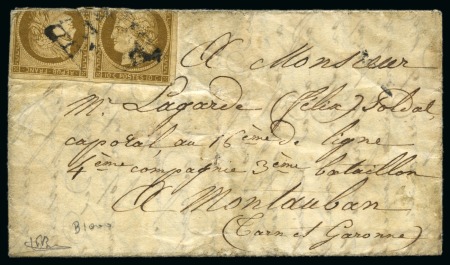 A Monsieur
Mr Lagarde (felix) Soldat
caporal au 16ème de ligne
4ème compagnie 3ème bataillon
A Montauban
(Tarn et Garonne)
10 C POSTES 10 C